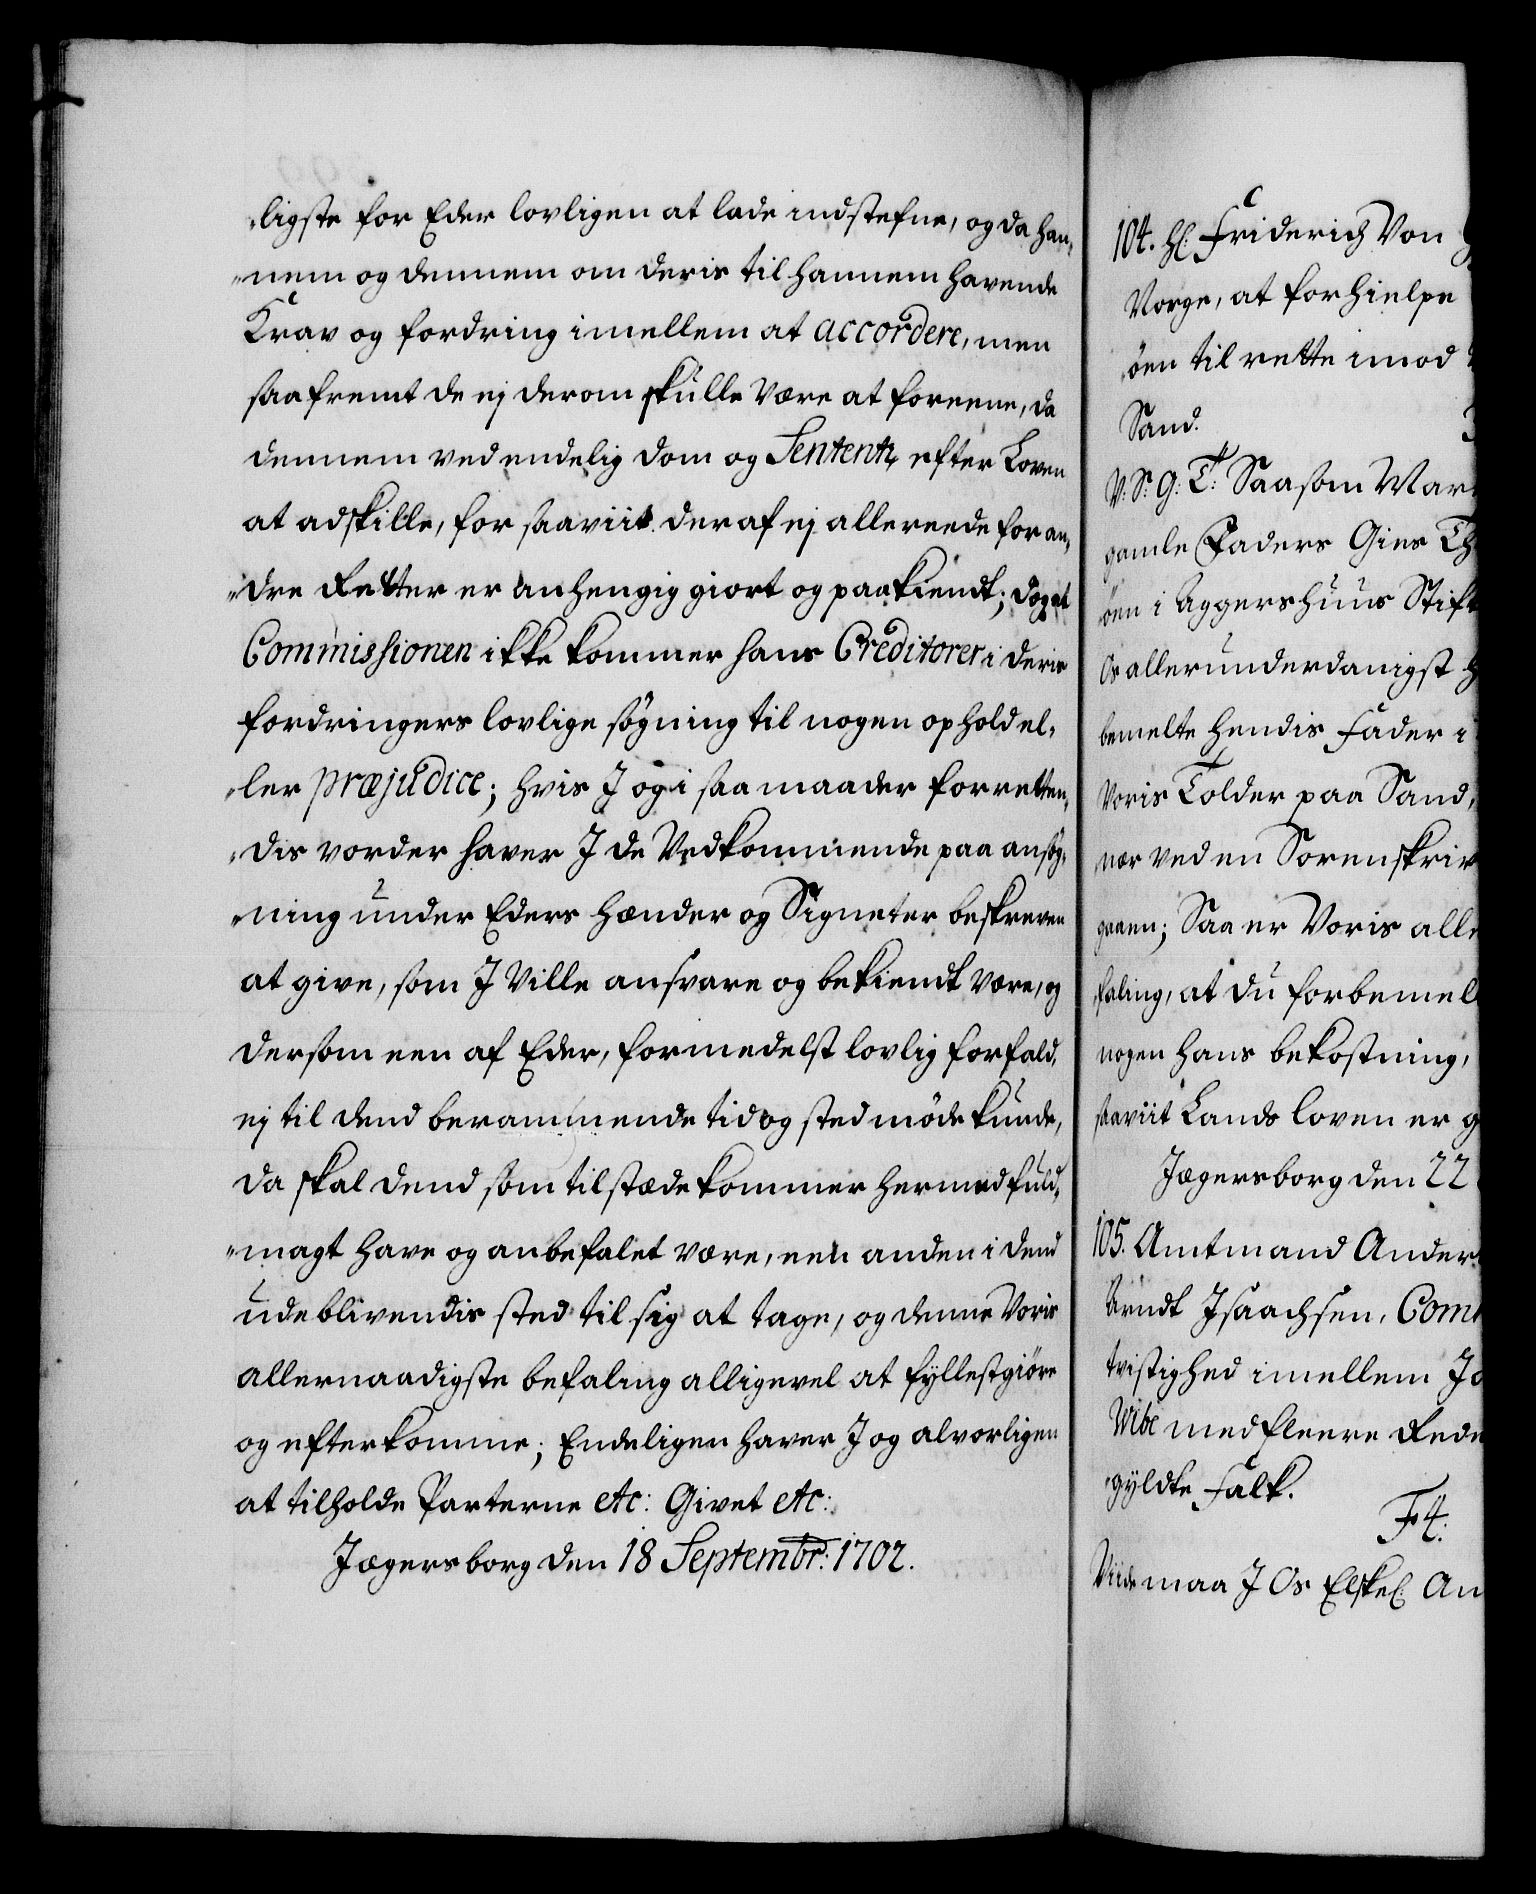 „ligste for Eder lovligen at lade indstefne, og da han„
„nem og dennem om deris til hannem havende
Krav og fordring imellem at accordere, men
saafremt de ej derom skulle være at foreene, da
dennem ved endelig dom og Sententz efter Loven
at adskille, for saaviit deraf ej allereede for an„
„dre Retter er anhengig giort og paakiendt; dog at
Commissionen ikke kommer hans Creditorer i deris
fordringers lovlige søgning til nogen ophold el„
„ler præjudice; hvis J og i saa maader forretten„
„dis vorder haver J de Vedkommende paa ansøg„
„ning under Eders hænder og Signeter beskreven
at give, som J Ville ansvare og bekiendt være, og
dersom een af Eder, formedelst lovlig forfald,
ej til dend berammende tid og sted møde kunde,
da skal dend som tilstæde kommer hermed fuld„
„magt have og anbefalet være, een anden i dend
udeblivendis sted til sig at tage, og denne Voris
allernaadigste befaling alligevel at fyllestgiøre
og efterkomme; Endeligen haver J og alvorligen
at tilholde Parterne etc: Givet etc:
Jægersborg den 18 Septembr: 1702.
104. Hl: Friderich Von
Vorge, at forhielpe
øen til rette imod
Sand.
V: S: G: T: Saasom Mar
gamle Faders Gies Th
øen i Aggershuus Stift
Os allerunderdanigst
bemelte hendis Fader i
Voris Tolder paa Sand,
nær ved en Sorenskriv
gaaen; Saa er Voris alle
faling, at du forbemel
nogen hans bekostning,
saaviit Lands loven er g
Jægersborg den 22
105. Amtmand Ander
Arndt Isaachsen, Com
tvistighed imellem Jo
Wibe med fleere Rede
gyldte Falk.
F4:
Viide maa J Os Elskel: An